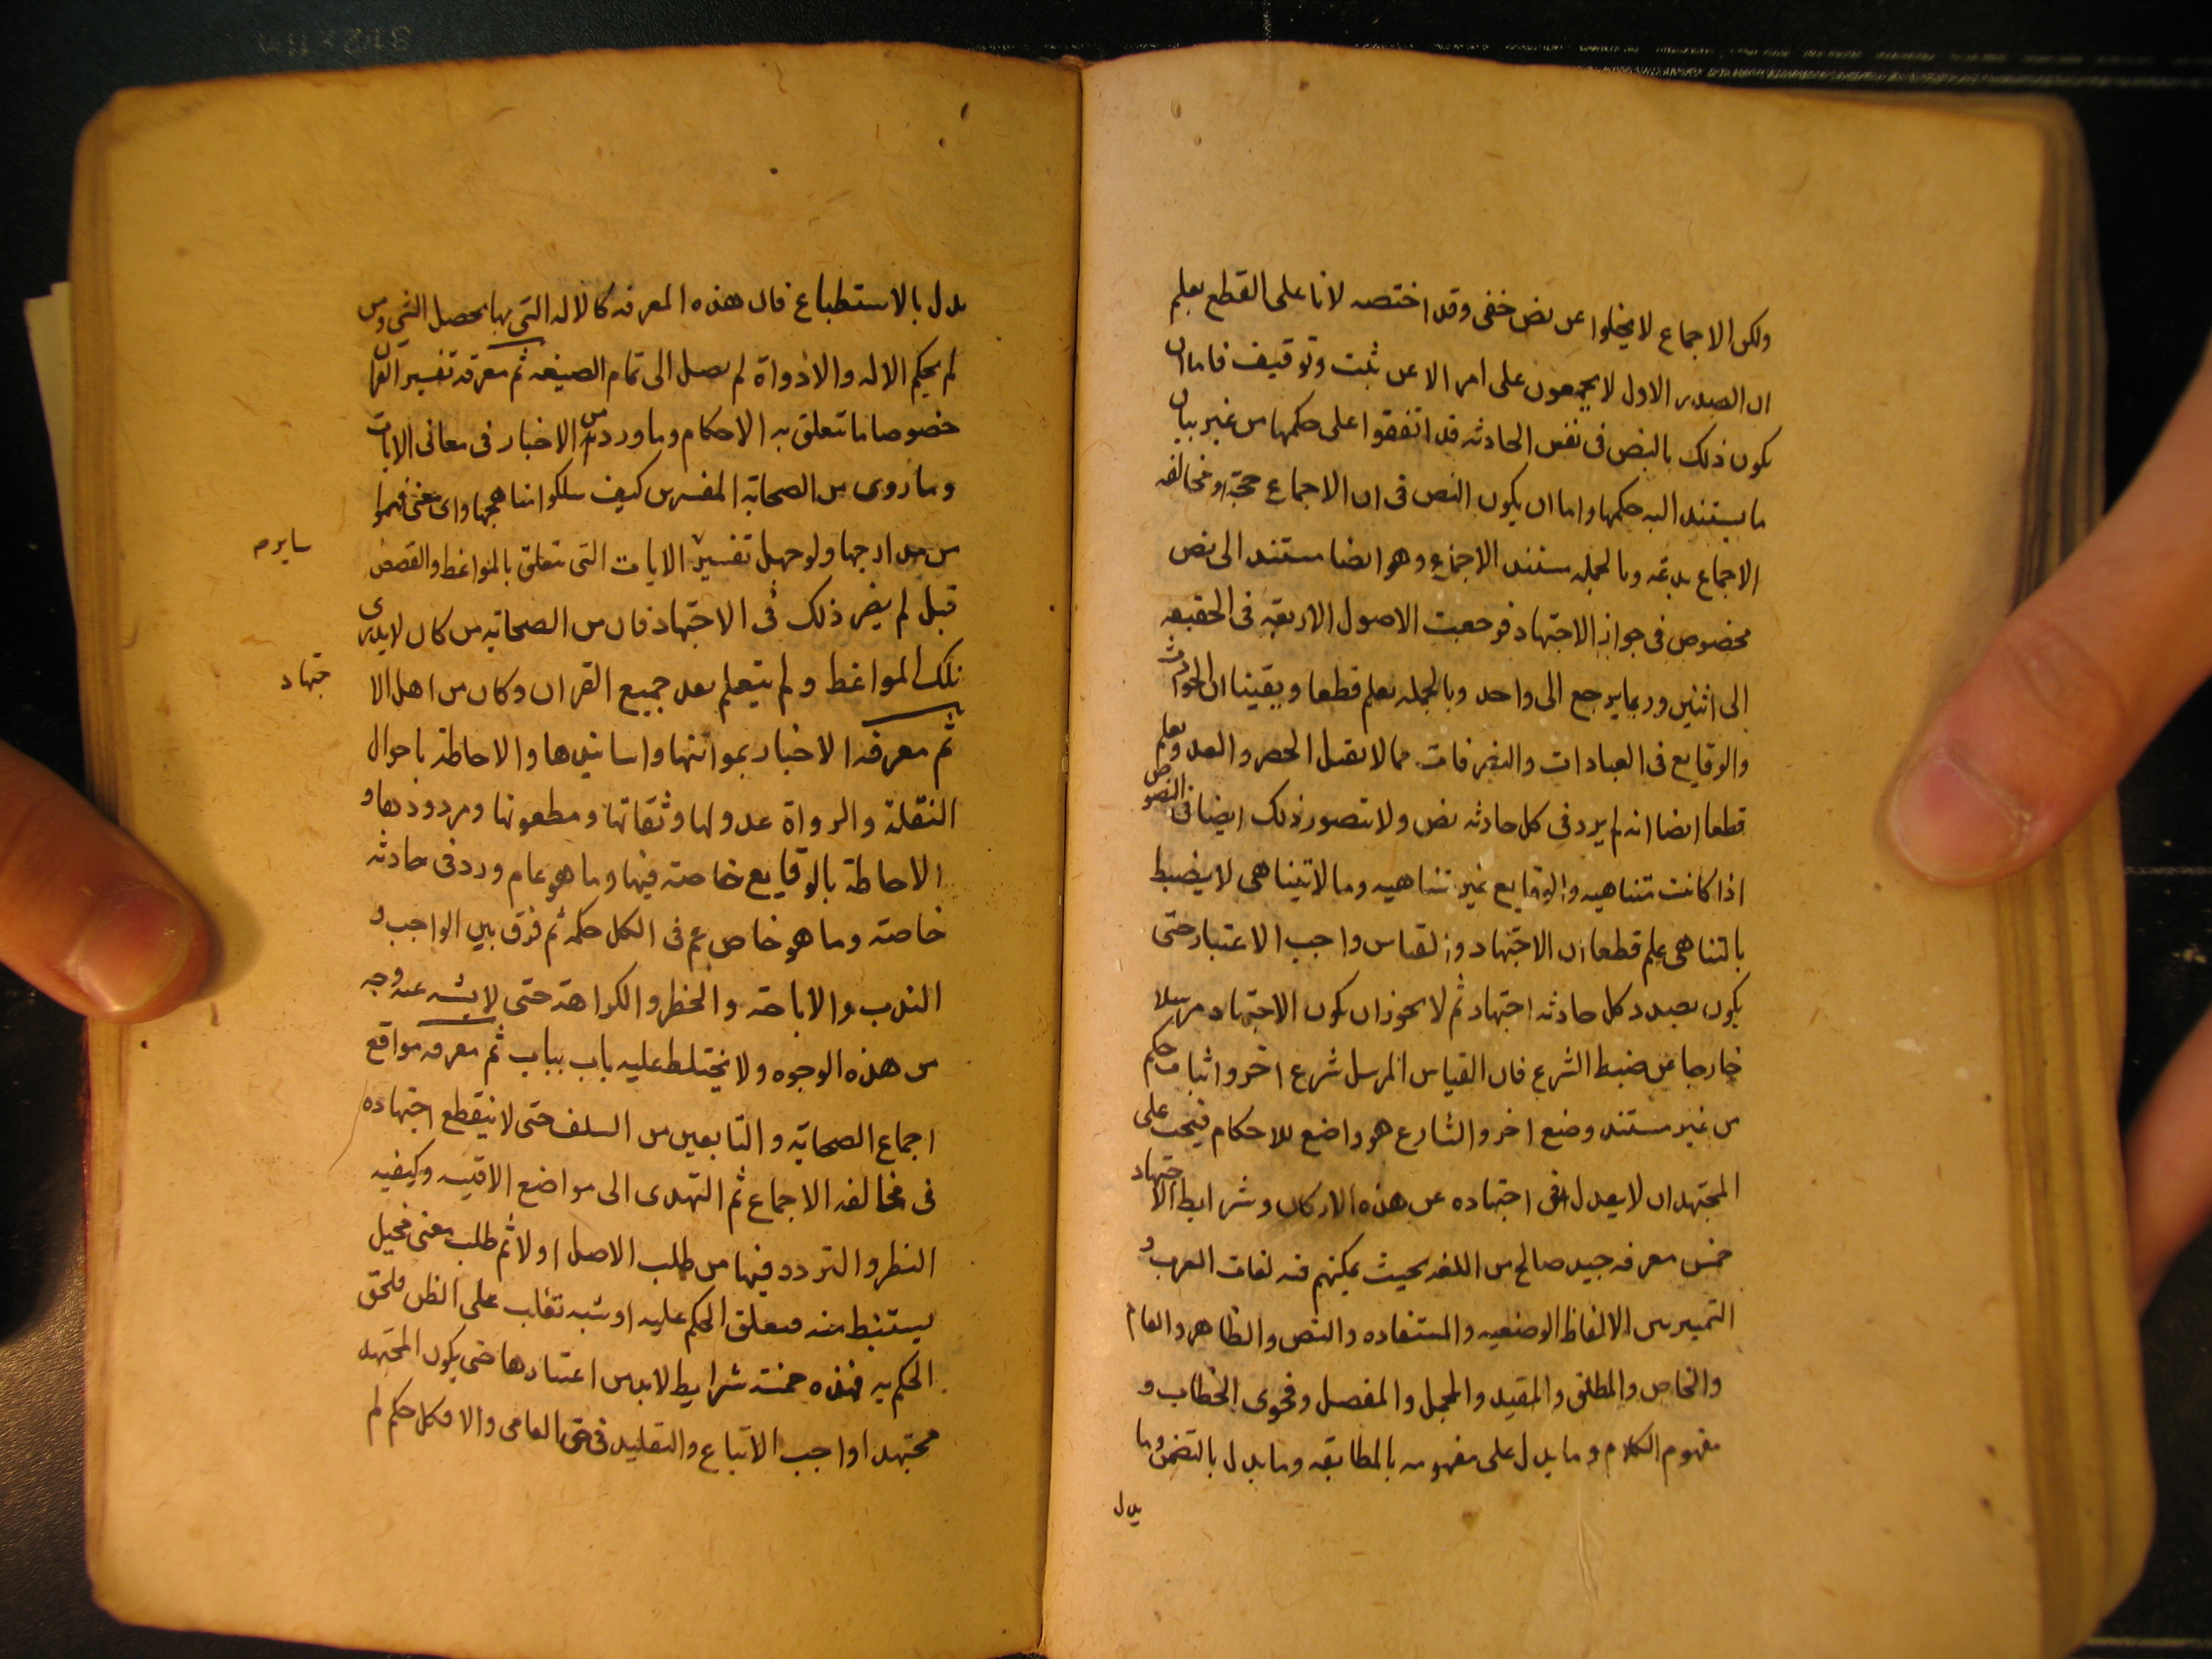 ولكن الاجماع لا يخلوا عن نص خفى وقد اختصه لانا على القطع نعلم
ان الصدر الاول لا يجمعون على امر الا عن ثبت وتوقيف فاما ان
يكون ذلك بالنص فى نفس الحادثه قد اتفقوا على حكمها من غير بيان
ما يستند اليه حكمها واما ان يكون النص فى ان الاجماع حجة ومخالفه
الاجماع بدعة وبالجمله مستند الاجماع وهو ايضا مستند الى نص
مخصوص فى جواز الاجتهاد فرجعت الاصول الاربعه فى الحقيقه
الى اثنين وربما يرجع الى واحد وبالجمله نعلم قطعا ويقينا ان الحوادث
والوقايع فى العبادات والتصرفات مما لا يقبل الحصر والعد ونعلم
قطعا ايضا انه لم يرد فى كل حادثه نص ولا يتصور ذلك ايضا فى النصوص
اذا كانت متناهيه والوقايع غير متناهيه وما لا يتناهى لا يضبط
بالتناهى علم قطعا ان الاجتهاد والقياس واجب الاعتبار حتى
يكون بصدد كل حادثه اجتهاد ثم لا يجوز ان يكون الاجتهاد مرسلا
خارجا عن ضبط الشرع فان القياس المرسل شرع اخر واثبات حكم
من غير مستند وضع اخر والشارع هو واضع للاحكام فيجب على
المجتهد ان لا يعدل فى اجتهاده عن هذه الاركان وشرايط الاجتهاد
خمس معرفه جيد صالح من اللغه بحيث يمكنهم فه لغات العرب و
التمييز بين الالفاظ الوضعيه والمستعاده والنص والظاهر والعام
والخاص والمطلق والمقيد والمجمل والمفصل وفحوى الخطاب و
مفهوم الكلام وما يدل على مفهومه بالمطابقه وما يدل بالتضمن وما
يدل
يدل بالاستطباع فان هذه المعرفه كالاله التى بها يحصل الشى ومن
لم يحكم الاله والادواة لم يصل الى تمام الصنيعه ثم معرفة تفسير القران
خصوصا ما تتعلق به الاحكام وما ورد من الاخبار فى معانى الايات
وما روى من الصحابة المفسرين كيف سلكوا مناهجها واى معنى فهموا
من مدارجها ولو جهل تفسير الايات التى تتعلق بالمواعظ والقصص
ساير
قيل لم يضر ذلك فى الاجتهاد فان من الصحابه من كان لا يدرى
تلك المواعظ ولم يتعلم بعد جميع القران وكان من اهل الا
جتهاد
ثم معرفة الاخبار بمواتنها واسانيدها والاحاطة باحوال
النقلة والرواة عدولها وثقاتها ومطعونها ومردودها و
الاحاطة بالوقايع خاصة فيها وما هو عام ورد فى حادثه
خاصة وما هو خاص عم فى الكل حكمه ثم فرق بين الواجب و
الندب والاباحة والحظر والكراهة حتى لا يشذ عنه وجه
من هذه الوجوه ولا يختلط عليه باب بباب ثم معرفه مواقع
اجماع الصحابة والتابعين من السلف حتى لا ينقطع اجتهاده
فى مخالفه الاجماع ثم التهدى الى مواضع الاقيسه وكيفيه
النظر والتردد فيها من طلب الاصل اولا ثم طلب معنى مخيل
يستنبط منه فيعلق الحكم عليه او شبه تغلب على الظن فيلحق
الحكم به فهذه خمسة شرايط لا بد من اعتبارها حتى يكون المجتهد
مجتهدا واجب الاتباع والتقليد فى حق العامى والا فكل حكم لم